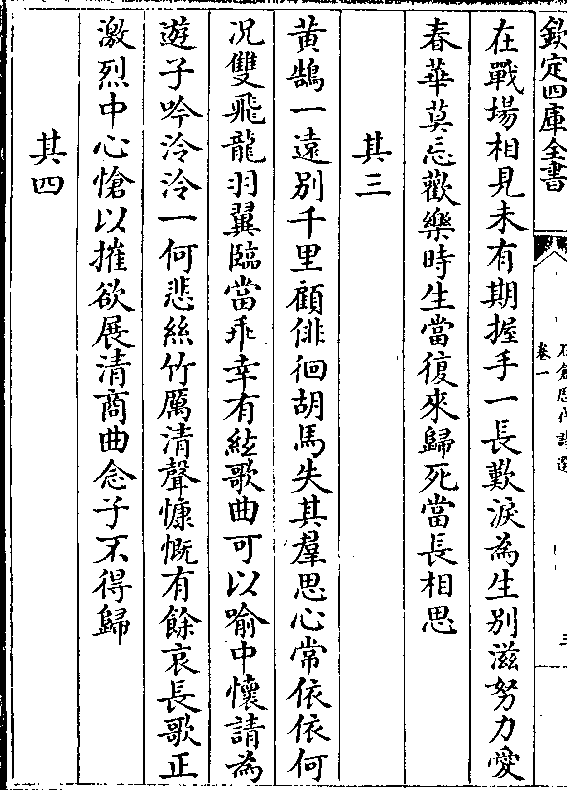 欽定四庫全書
卷一
在戰場相見未有期握手一長歎淚為生别滋努力愛
春華莫忘歡樂時生當復來歸死當長相思
其三
黄鵠一遠别千里顧徘徊胡馬失其羣思心常依依何
况雙飛龍羽翼臨當乖幸有絃歌曲可以喻中懷請為
遊子吟泠泠一何悲絲竹厲清聲慷慨有餘哀長歌正
激烈中心愴以摧欲展清商曲念子不得歸
其四